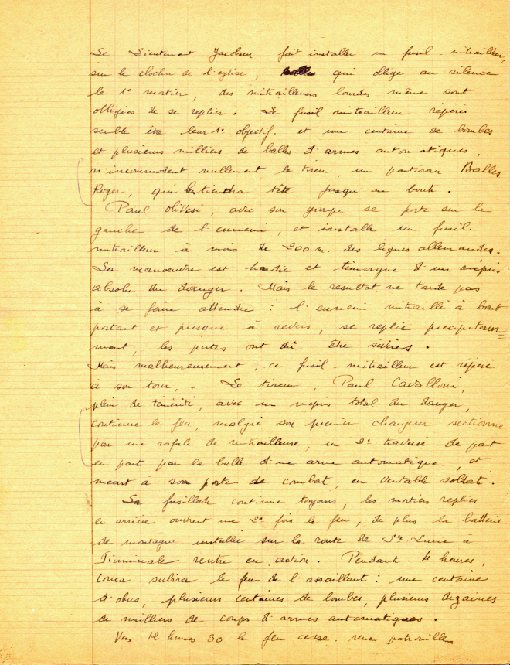 Le Lieutenant Jacobson fait installer un fusil-mitrailleur,
sur le clocher de l'église, qui oblige au silence
le 1er mortier, des mitrailleuses lourdes même sont
obligées de se replier. Le fusil mitrailleur repéré
semble être leur 1er objectif. et une centaine de bombes
et plusieurs milliers de balles d'armes automatiques,
n'incommodent nullement le tireur, un partisan Balles
Roger, qui tiendra tête jusqu'au bout.
Paul Olivieri, avec son groupe se porte sur la
gauche de l'ennemi, et installe un fusil-
mitrailleur à moins de 200 m. des lignes allemandes.
Sa manœuvre est hardie et témoigne d'un mépris
absolu du danger. Mais le résultat ne tarde pas
à se faire attendre: l'ennemi mitraillé à bout
portant et presque à revers, se replie précipitam-
ment, les pertes ont dû être sévères.
Mais malheureusement, ce fusil-mitrailleur est repéré
à son tour. Le tireur, Paul Cavalloni,
plein de ténacité, avec un mépris total du danger,
continue le feu, malgré son premier chargeur sectionné
par une rafale de mitrailleuse, un 2e traversé de part
en part par la balle d'une arme automatique, et
meurt à son poste de combat, en véritable soldat.
La fusillade continue toujours, les mortiers repliés
en arrière ouvrent une 2e fois le feu, de plus la batterie
de montagne installée sur la route de Ste Lucie à
rentre en action. Pendant 4 heures,
subira le feu de l'assaillant: une centaine
d'obus, plusieurs centaines de bombes, plusieurs dizaines
de milliers de coups d'armes automatiques.
Vers 4 heures 30 le feu cesse, une patrouille